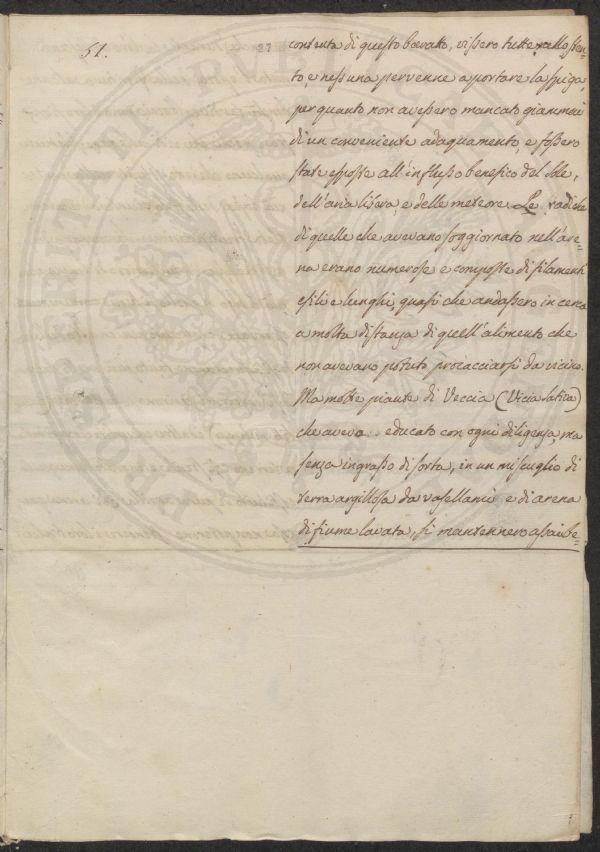 51.
27
contenta di questo bavatto, vissero tutte nello sten=
to, e nessuna pervenne a portare la spiga,
per quanto non avessero mancato giammai
di un conveniente adaquamento, e fossero
state esposte all'influsso benefico del sole,
dell'aria libera, e delle meteore. Le radici
di quelle che avevano soggiornato nell'are=
na erano numerose e composte di filamenti
esili e lunghi, quasi che andassero in cerca
a molta distanza di quell'alimento che
non avevano potuto procacciarsi da vicino.
Ma molte piante di Veccia (Vicia Sativa)
che aveva educato con ogni diligenza, ma
senza ingrasso di sorta, in un miscuglio di
terra argillosa da vasellami e di arena
di fiume lavata, si mantennero assai be=